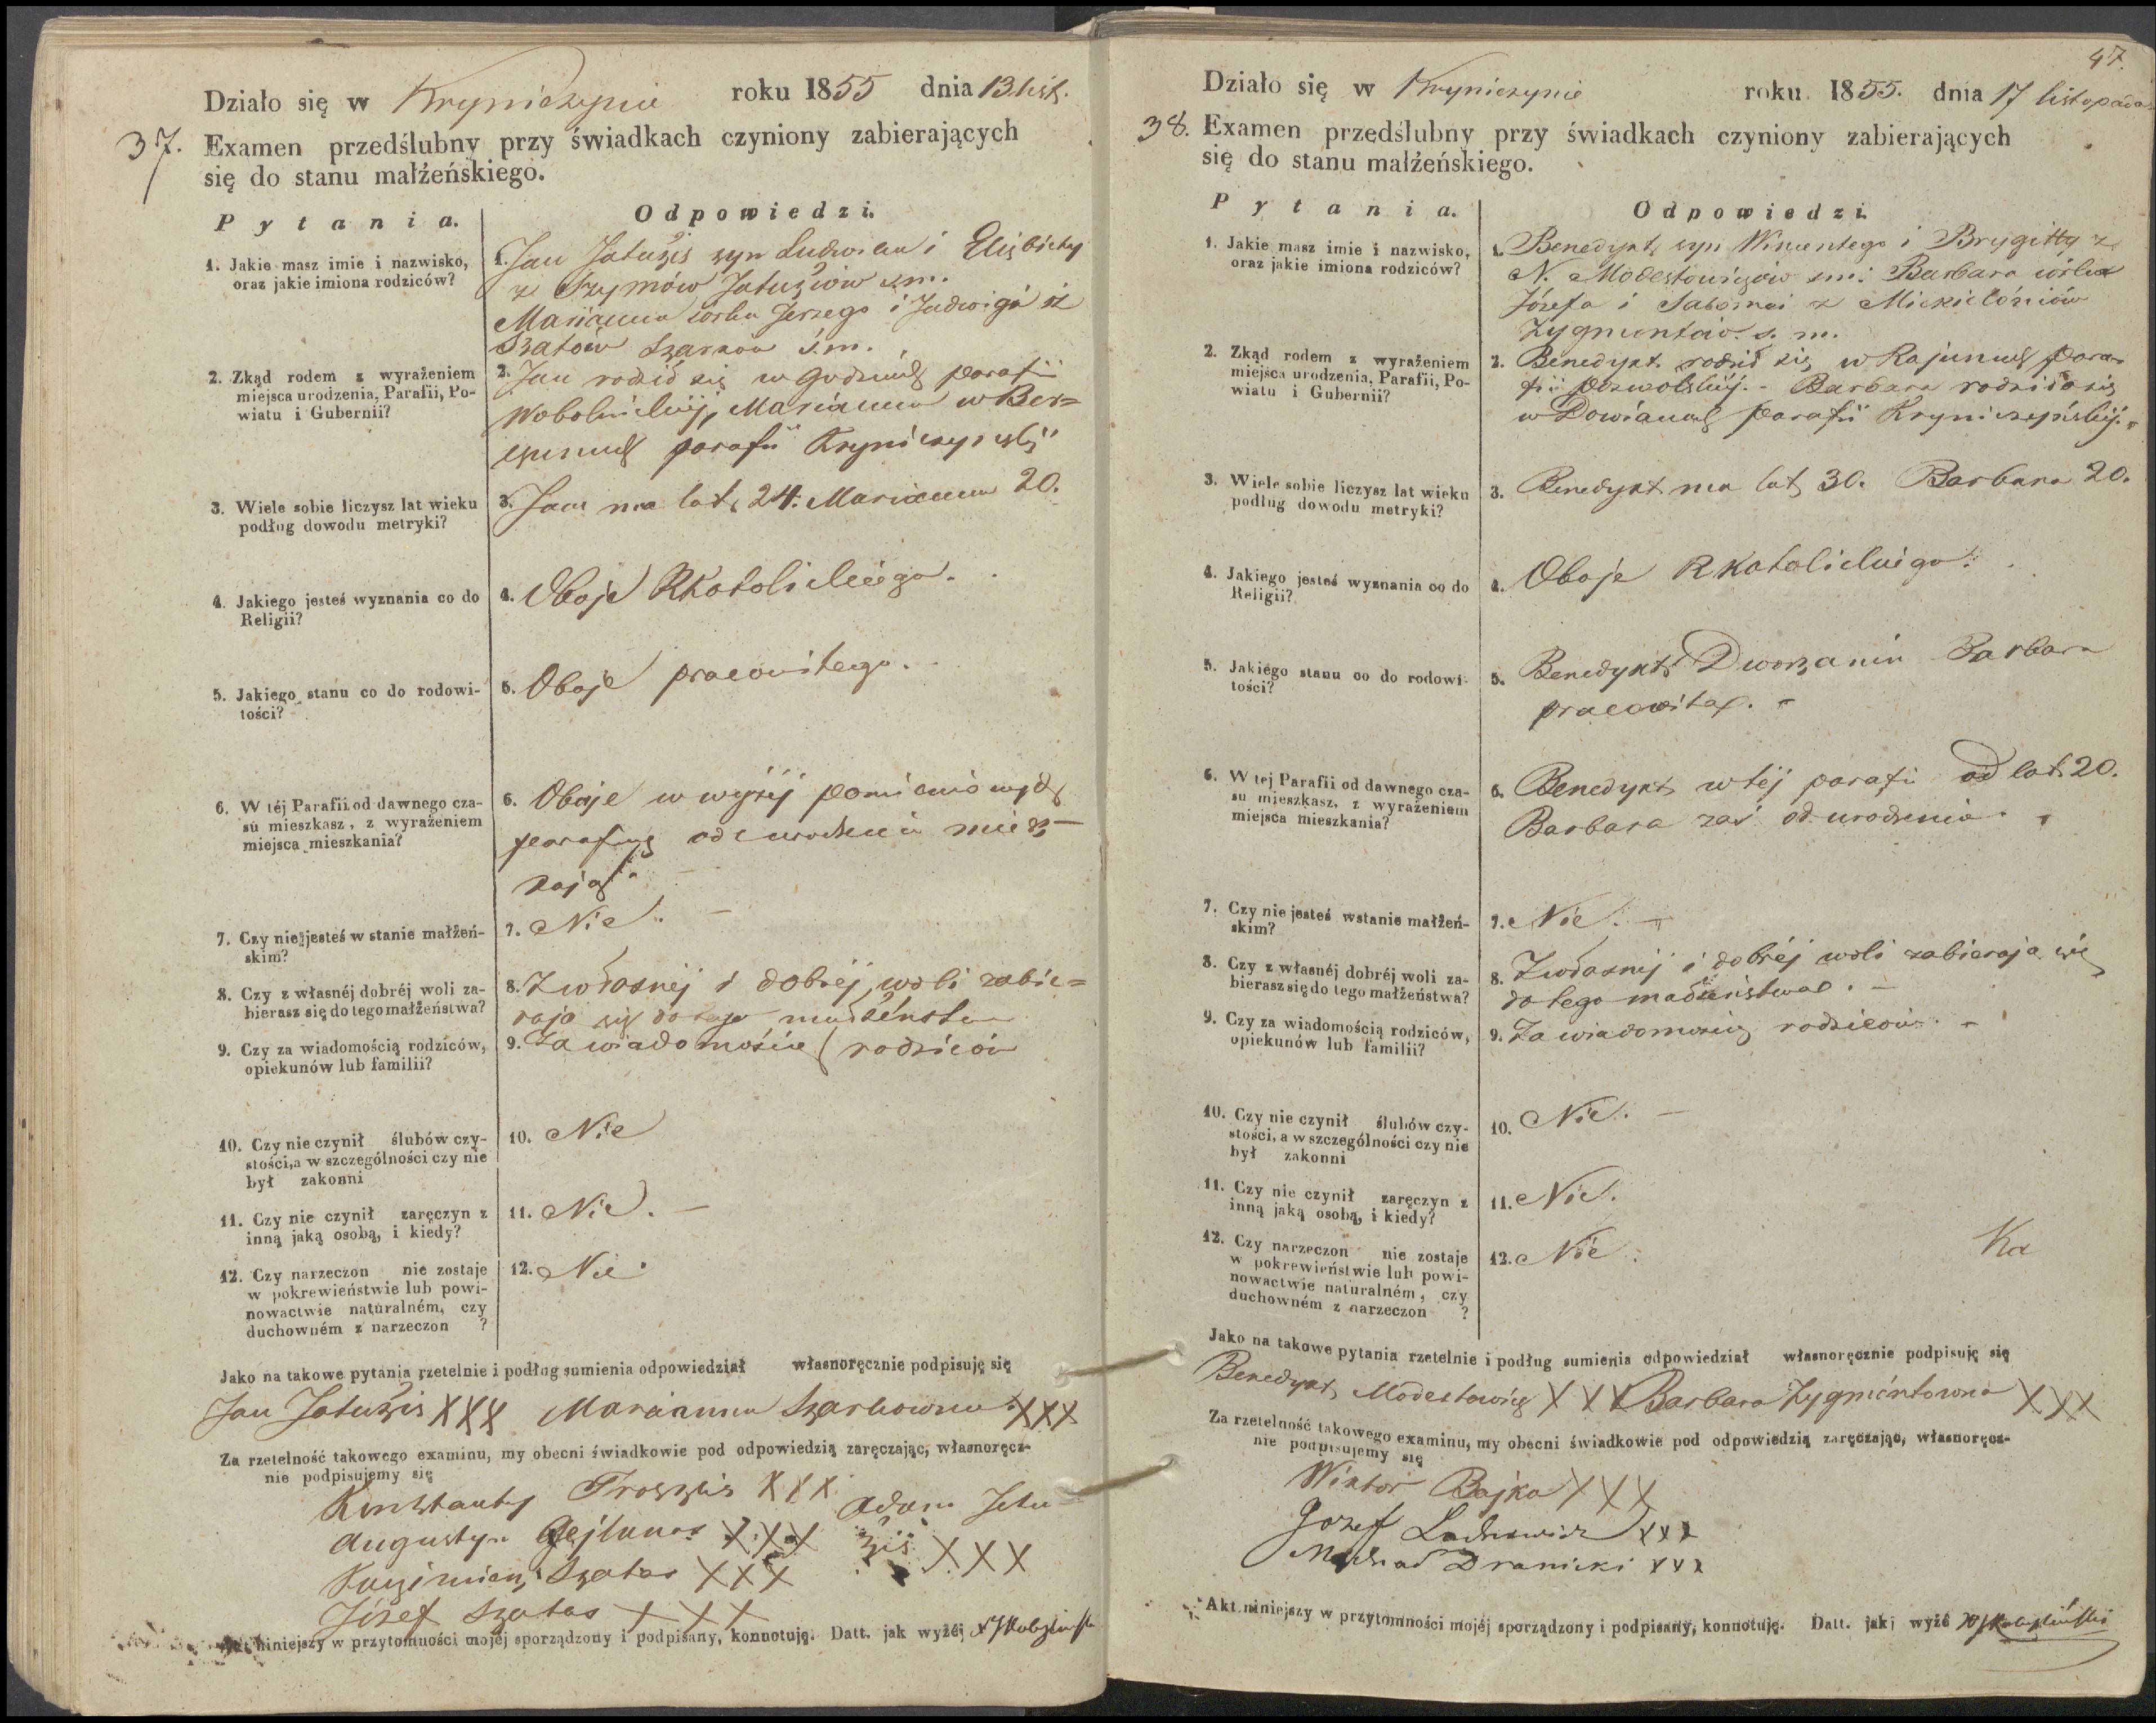 Działo się w Kryniczynie roku 1855 dnia 13 list.
37. Examen przedślubny przy świadkach czyniony zabierających
się do stanu małżeńskiego.
Pytania. Odpowiedzi.
1. Jakie masz imie i nazwisko,
oraz jakie imiona rodziców?
1. Jan Jatużis syn Ludwika i Elżbiety
z Szymów Jatużiów s.m.
Marianna córka Jerzego i Jadwigi iż
Szatów Szarków s.m.
2. Zkąd rodem z wyrażeniem
miejsca urodzenia, Parafii, Po-
wiatu i Gubernii?
2. Jan rodził się w parafii
Wobolnickiéj, Marianna w Ber=
parafii Kryniczyńskiéj
3. Wiele sobie liczysz lat wieku
podług dowodu metryki?
3. Jan ma lat 24. Marianna 20.
4. Jakiego jesteś wyznania co do
Religii?
4. Oboje RKatolickiego.
5. Jakiego stanu co do rodowi-
tości?
5. Oboje pracowitego.
6. W téj Parafii od dawnego cza-
su mieszkasz, z wyrażeniem
miejsca mieszkania?
6. Oboje w wyżéj pomienionych
parafiach od urodzenia miesz-
kają.
7. Czy nie jesteś w stanie małżeń-
skim?
7. Nie. —
8. Czy z własnéj dobréj woli za-
bierasz się do tego małżeństwa?
8. Z własnéj i dobréj woli zabie=
rają się do tego małżeństwa
9. Czy za wiadomością rodziców,
opiekunów lub familii?
9. Za wiadomością rodziców
10. Czy nie czynił ślubów czy-
stości, a w szczególności czy nie
był zakonni
10. Nie
11. Czy nie czynił zaręczyn z
inną jaką osobą, i kiedy?
11. Nie. —
12. Czy narzeczon nie zostaje
w pokrewieństwie lub powi-
nowactwie naturalném, czy
duchowném z narzeczon ?
12. Nie.
Jako na takowe pytania rzetelnie i podług sumienia odpowiedział własnoręcznie podpisuję się
Jan Jatużis XXX Marianna Szarkowna XXX
Za rzetelność takowego examinu, my obecni świadkowie pod odpowiedzią zaręczając, własnoręcz-
nie podpisujemy się
Konstanty Troszkis XXX Adam Jatu
Augustyn Gejlunas XXX żis XXX
Kazimierz Szatas XXX
Józef Szatas XXX
Akt niniejszy w przytomności mojéj sporządzony i podpisany, konnotuję. Datt. jak wyżéj
47.
Działo się w Kryniczynie roku 1855. dnia 17 listopada
38. Examen przedślubny przy świadkach czyniony zabierających
się do stanu małżeńskiego.
Pytania. Odpowiedzi.
1. Jakie masz imie i nazwisko,
oraz jakie imiona rodziców?
1. Benedykt syn Wincentego i Brygitty z
N. Modestowiczów s.m: Barbara córka
Józefa i Salomei z Mickielóniów
Zygmuntów s. m.
2. Zkąd rodem z wyrażeniem
miejsca urodzenia, Parafii, Po-
wiatu i Gubernii?
2. Benedykt rodził się w Rajunach para-
fii Pozwolskiéj. - Barbara rodziła się
w Dowianach parafii Kryniczyńskiéj.
3. Wiele sobie liczysz lat wieku
podług dowodu metryki?
3. Benedykt ma lat 30. Barbara 20.
4. Jakiego jesteś wyznania co do
Religii?
4. Oboje RKatolickiego.
5. Jakiégo stanu co do rodowi-
tości?
5. Benedykt Dworzanin Barbara
pracowita. -
6. W tej Parafii od dawnego cza-
su mieszkasz, z wyrażeniem
miejsca mieszkania?
6. Benedykt w téj parafii od lat 20.
Barbara zaś od urodzenia.
7. Czy nie jesteś wstanie małżeń-
skim?
7. Nie. -
8. Czy z własnéj dobréj woli za-
bierasz się do tego małżeństwa?
8. Z własnéj i dobréj woli zabierają się
do tego małżeństwa. -
9. Czy za wiadomością rodziców,
opiekunów lub familii?
9. Za wiadomością rodziców. -
10. Czy nie czynił ślubów czy-
stości, a w szczególności czy nie
był zakonni
10. Nie. —
11. Czy nie czynił zaręczyn z
inną jaką osobą, i kiedy?
11. Nie.
12. Czy narzeczon nie zostaje
w pokrewieństwie lub powi-
nowactwie naturalném, czy
duchowném z narzeczon ?
12. Nie. Ka
Jako na takowe pytania rzetelnie i podług sumienia odpowiedział własnoręcznie podpisuję się
Benedykt Modestowicz XXX Barbara Zygmóntowna XXX
Za rzetelność takowego examinu, my obecni świadkowie pod odpowiedzią zaręczając, własnoręcz-
nie podpisujemy się
Wiktor Bajka XXX
Jozef Lachowicz XXX
Michał Dranicki XXX
Akt niniejszy w przytomności mojéj sporządzony i podpisany, konnotuję. Datt. jak wyżé